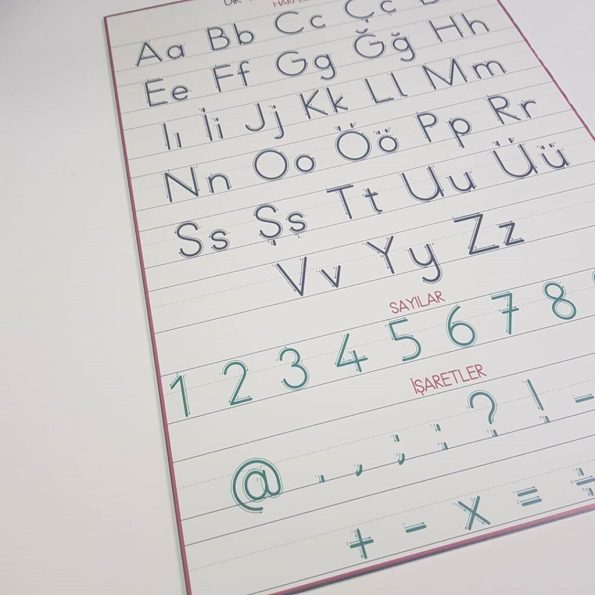 DİK
HARFLER
Aa Bb Cc Çç
Ee Ff Gg Ğğ Hh
Iı İi Jj Kk Ll Mm
Nn Oo Öö Pp Rr
Ss Şş Tt Uu Üü
Vv Yy Zz
SAYILAR
1 2 3 4 5 6 7 8
İŞARETLER
@ . , ; : ? ! -
+ - x = ÷